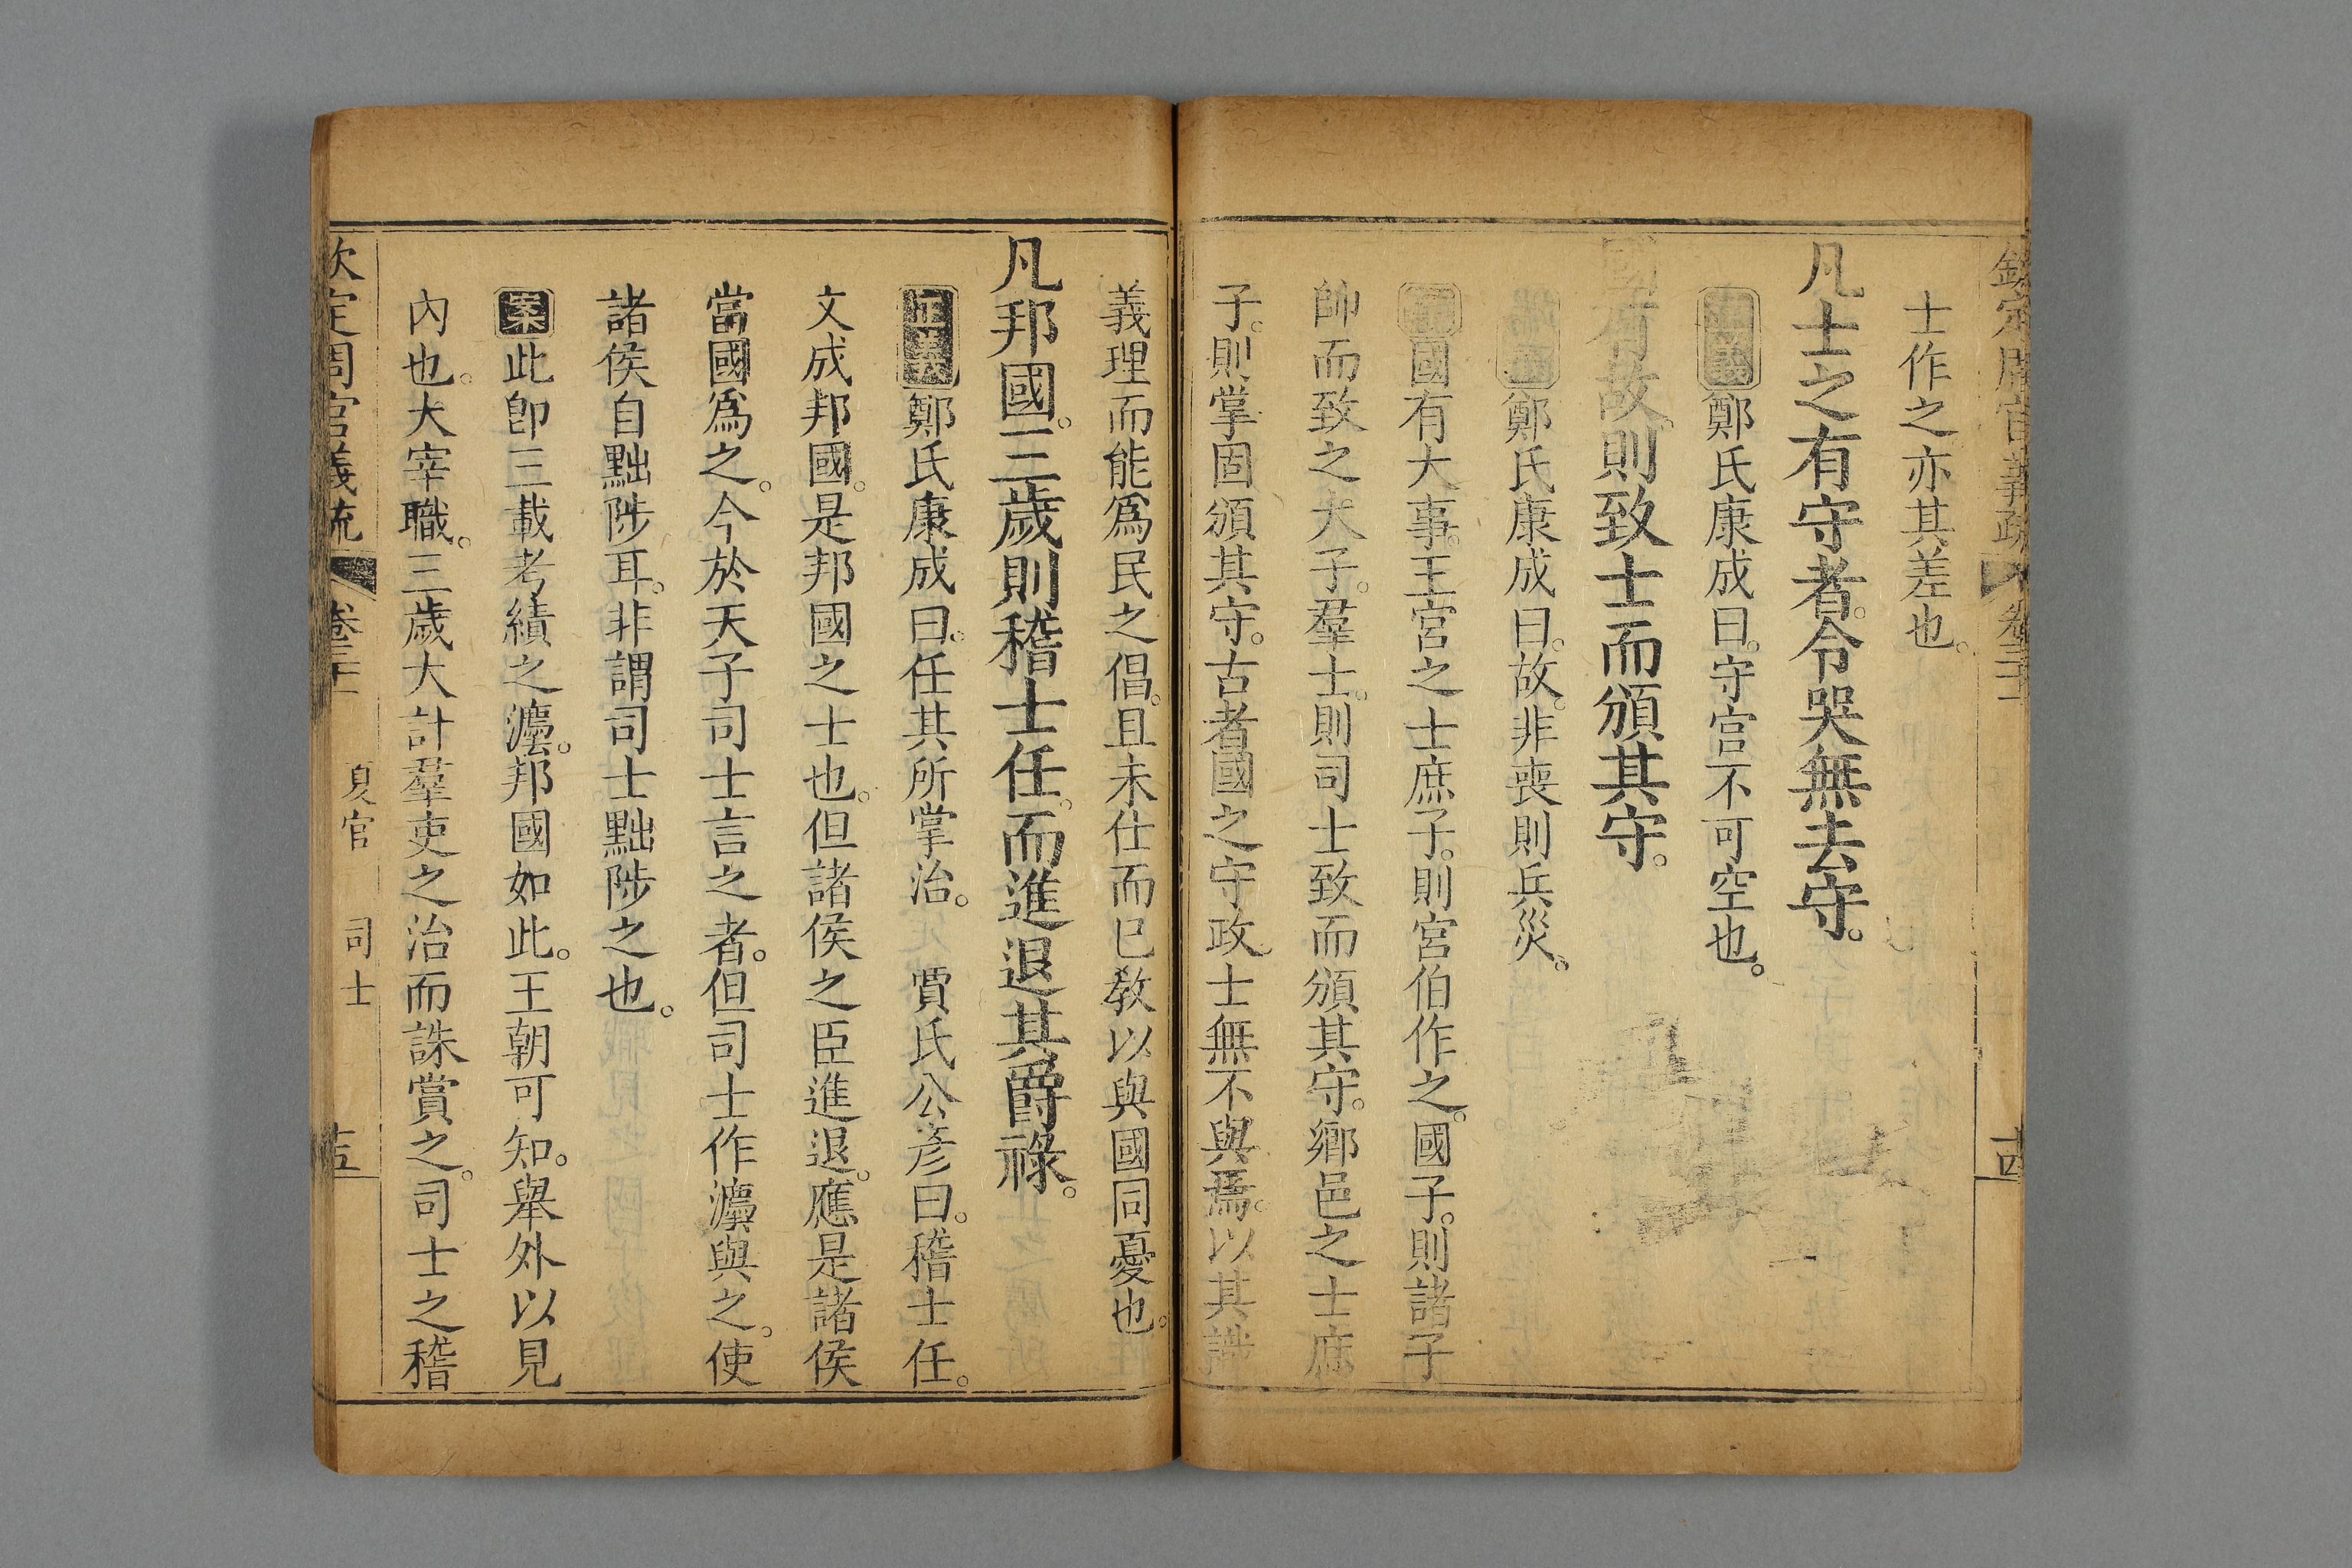 欽定周官義疏 卷三十一 十四
士作之亦其差也。
凡士之有守者。令哭無去守。
正義鄭氏康成曰。守官不可空也。
國有故。則致士而頒其守。
鄭氏康成曰。故。非喪則兵災。
國有大事。王宮之士庶子。則宮伯作之。國子。則諸子
帥而致之。大子。羣士。則司士致而頒其守。鄉邑之士庶
子。則掌固頒其守。古者國之守政。士無不與焉。以其識
義理而能爲民之倡。且未仕而已教以與國同憂也。
凡邦國。三歲則稽士任。而進退其爵祿。
正義鄭氏康成曰。任其所掌治。 賈氏公彥曰。稽士任。
文成邦國。是邦國之士也。但諸侯之臣進退。應是諸侯
當國爲之。今於天子司士言之者。但司士作灋與之。使
諸侯自黜陟耳。非謂司士黜陟之也。
案此卽三載考績之灋。邦國如此。王朝可知。舉外以見
內也。大宰職。三歲大計羣吏之治而誅賞之。司士之稽
欽定周官義疏 卷三十一 夏官 司士 十五